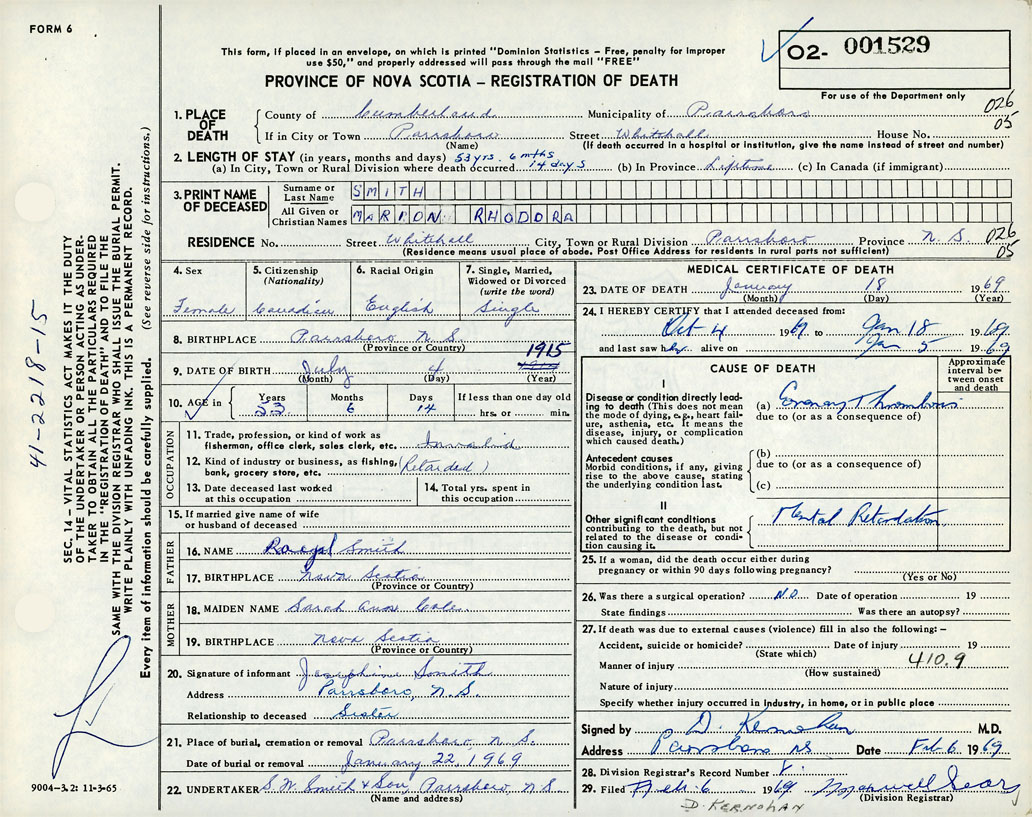 FORM 6
This form, if placed in an envelope, on which is printed "Dominion Statistics – Free, penalty for improper
use $50," and properly addressed will pass through the mail "FREE"
PROVINCE OF NOVA SCOTIA – REGISTRATION OF DEATH
O2- 001529
For use of the Department only
026
05
1. PLACE OF DEATH
County of Cumberland Municipality of Parrsboro
If in City or Town Parrsboro Street Whitehall House No.
(Name) (If death occurred in a hospital or institution, give the name instead of street and number)
2. LENGTH OF STAY (in years, months and days) 53 yrs. 6 mths
(a) In City, Town or Rural Division where death occurred 14 days (b) In Province Lifetime (c) In Canada (if immigrant)
3. PRINT NAME OF DECEASED
Surname or Last Name SMITH
All Given or Christian Names MARION RHODORA
RESIDENCE No. Street Whitehall City, Town or Rural Division Parrsboro Province N.S. 026
05
(Residence means usual place of abode. Post Office Address for residents in rural ports not sufficient)
4. Sex 5. Citizenship (Nationality) 6. Racial Origin 7. Single, Married, Widowed or Divorced (write the word)
Female Canadian English Single
8. BIRTHPLACE Parrsboro N.S.
(Province or Country)
1915
9. DATE OF BIRTH July 4
(Month) (Day) (Year)
10. AGE in Years Months Days If less than one day old
53 6 14 hrs. or min.
OCCUPATION
11. Trade, profession, or kind of work as
fisherman, office clerk, sales clerk, etc. Invalid
12. Kind of industry or business, as fishing, (Retarded)
bank, grocery store, etc.
13. Date deceased last worked
at this occupation
14. Total yrs. spent in
this occupation
15. If married give name of wife
or husband of deceased
FATHER
16. NAME Smith
17. BIRTHPLACE Nova Scotia
(Province or Country)
MOTHER
18. MAIDEN NAME Sarah Ann Cole
19. BIRTHPLACE Nova Scotia
(Province or Country)
20. Signature of informant Josephine Smith
Address Parrsboro, N.S.
Relationship to deceased Sister
21. Place of burial, cremation or removal Parrsboro, N.S.
Date of burial or removal January 22, 1969
22. UNDERTAKER S.W. Smith & Son, Parrsboro, N.S.
(Name and address)
MEDICAL CERTIFICATE OF DEATH
23. DATE OF DEATH January 18 1969
(Month) (Day) (Year)
24. I HEREBY CERTIFY that I attended deceased from:
Oct 4 19 to Jan 18 1969
and last saw her alive on Jan 5 1969
CAUSE OF DEATH
Approximate interval between onset and death
I
Disease or condition directly leading to death (This does not
mean the mode of dying, e.g., heart failure, asthenia, etc. It means the
disease, injury, or complication
which caused death.)
(a) Coronary Thrombosis
due to (or as a consequence of)
Antecedent causes
Morbid conditions, if any, giving
rise to the above cause, stating
the underlying condition last.
(b)
due to (or as a consequence of)
(c)
II
Other significant conditions
contributing to the death, but not
related to the disease or condition causing it.
Mental Retardation
25. If a woman, did the death occur either during
pregnancy or within 90 days following pregnancy?
(Yes or No)
26. Was there a surgical operation? No Date of operation 19
State findings Was there an autopsy?
27. If death was due to external causes (violence) fill in also the following: –
Accident, suicide or homicide? Date of injury 19
(State which)
Manner of injury 410.9
(How sustained)
Nature of injury
Specify whether injury occurred in Industry, in home, or in public place
Signed by D. Kernohan M.D.
Address Parrsboro NS Date Feb 6 1969
28. Division Registrar's Record Number
29. Filed Feb. 6 1969 Maxwell Sears
(Division Registrar)
D. KERNOHAN
41-2218-15
SEC. 14 – VITAL STATISTICS ACT MAKES IT THE DUTY
OF THE UNDERTAKER OR PERSON ACTING AS UNDER-
TAKER TO OBTAIN ALL THE PARTICULARS REQUIRED
IN THE "REGISTRATION OF DEATH" AND TO FILE THE
SAME WITH THE DIVISION REGISTRAR WHO SHALL ISSUE THE BURIAL PERMIT.
WRITE PLAINLY WITH UNFADING INK. THIS IS A PERMANENT RECORD.
Every item of information should be carefully supplied. (See reverse side for instructions.)
9004-3.2: 11-3-65